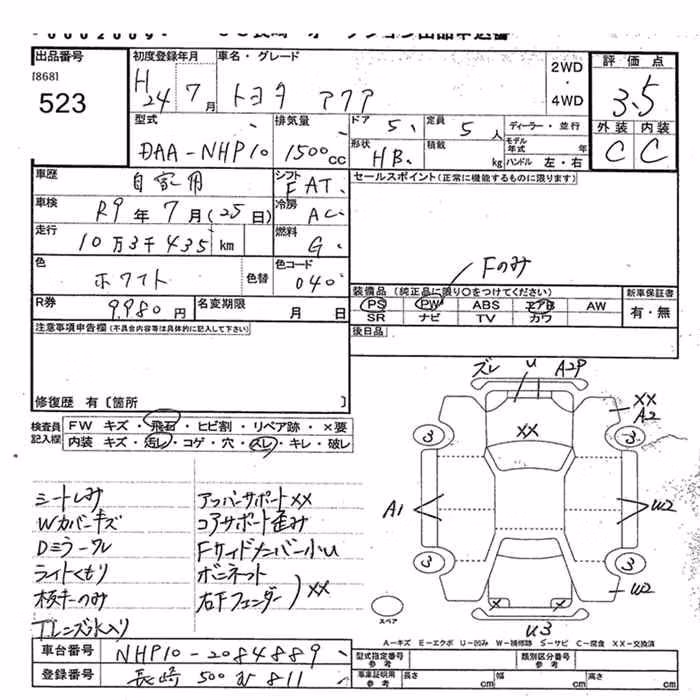 出品番号
[868]
523
初度登録年月 車名・グレード
H 24 7月 トヨタ アクア
2WD・4WD
評価点
3.5
外装 内装
C C
型式 排気量 ドア 5 定員 5人 ディーラー・並行
DAA-NHP10 1500cc 形状 HB 積載 kg モデル年式 年 ハンドル 左・右
車歴 自家用 シフト FAT セールスポイント(正常に機能するものに限ります)
車検 R9年7月(25日) 冷房 AC
走行 10万3千435km 燃料 G
色 ホワイト 色替 色コード 040
Fのみ
装備品(純正品に限り○をつけてください) 新車保証書
PS PW ABS エアB AW 有・無
SR ナビ TV カワ
R券 9980円 名変期限 月 日
後日品
注意事項申告欄(不具合内容等は具体的に記入して下さい)
修復歴 有〔箇所 〕
検査員記入欄
FW キズ・飛石・ヒビ割・リペア跡・×要
内装 キズ・汚レ・コゲ・穴・スレ・キレ・破レ
ズレ U A2P
XX A2
3 XX 3
A1 U2
3 3
U2
X X
U3
スペア
シートしみ アッパーサポートXX
Wカバーキズ コアサポート歪み
Dミラークレ Fサイドメンバー小U
ライトくもり ボンネット
板キーのみ 右下フェンダー XX
Tレンズ水入り
A-キズ E-エクボ U-凹み W-補修跡 S-サビ C-腐食 XX-交換済
車台番号 NHP10-2084889 型式指定番号 参考 類別区分番号 参考
登録番号 長崎 500 W 811 車庫証明用 参考 長さ cm 幅 cm 高さ cm